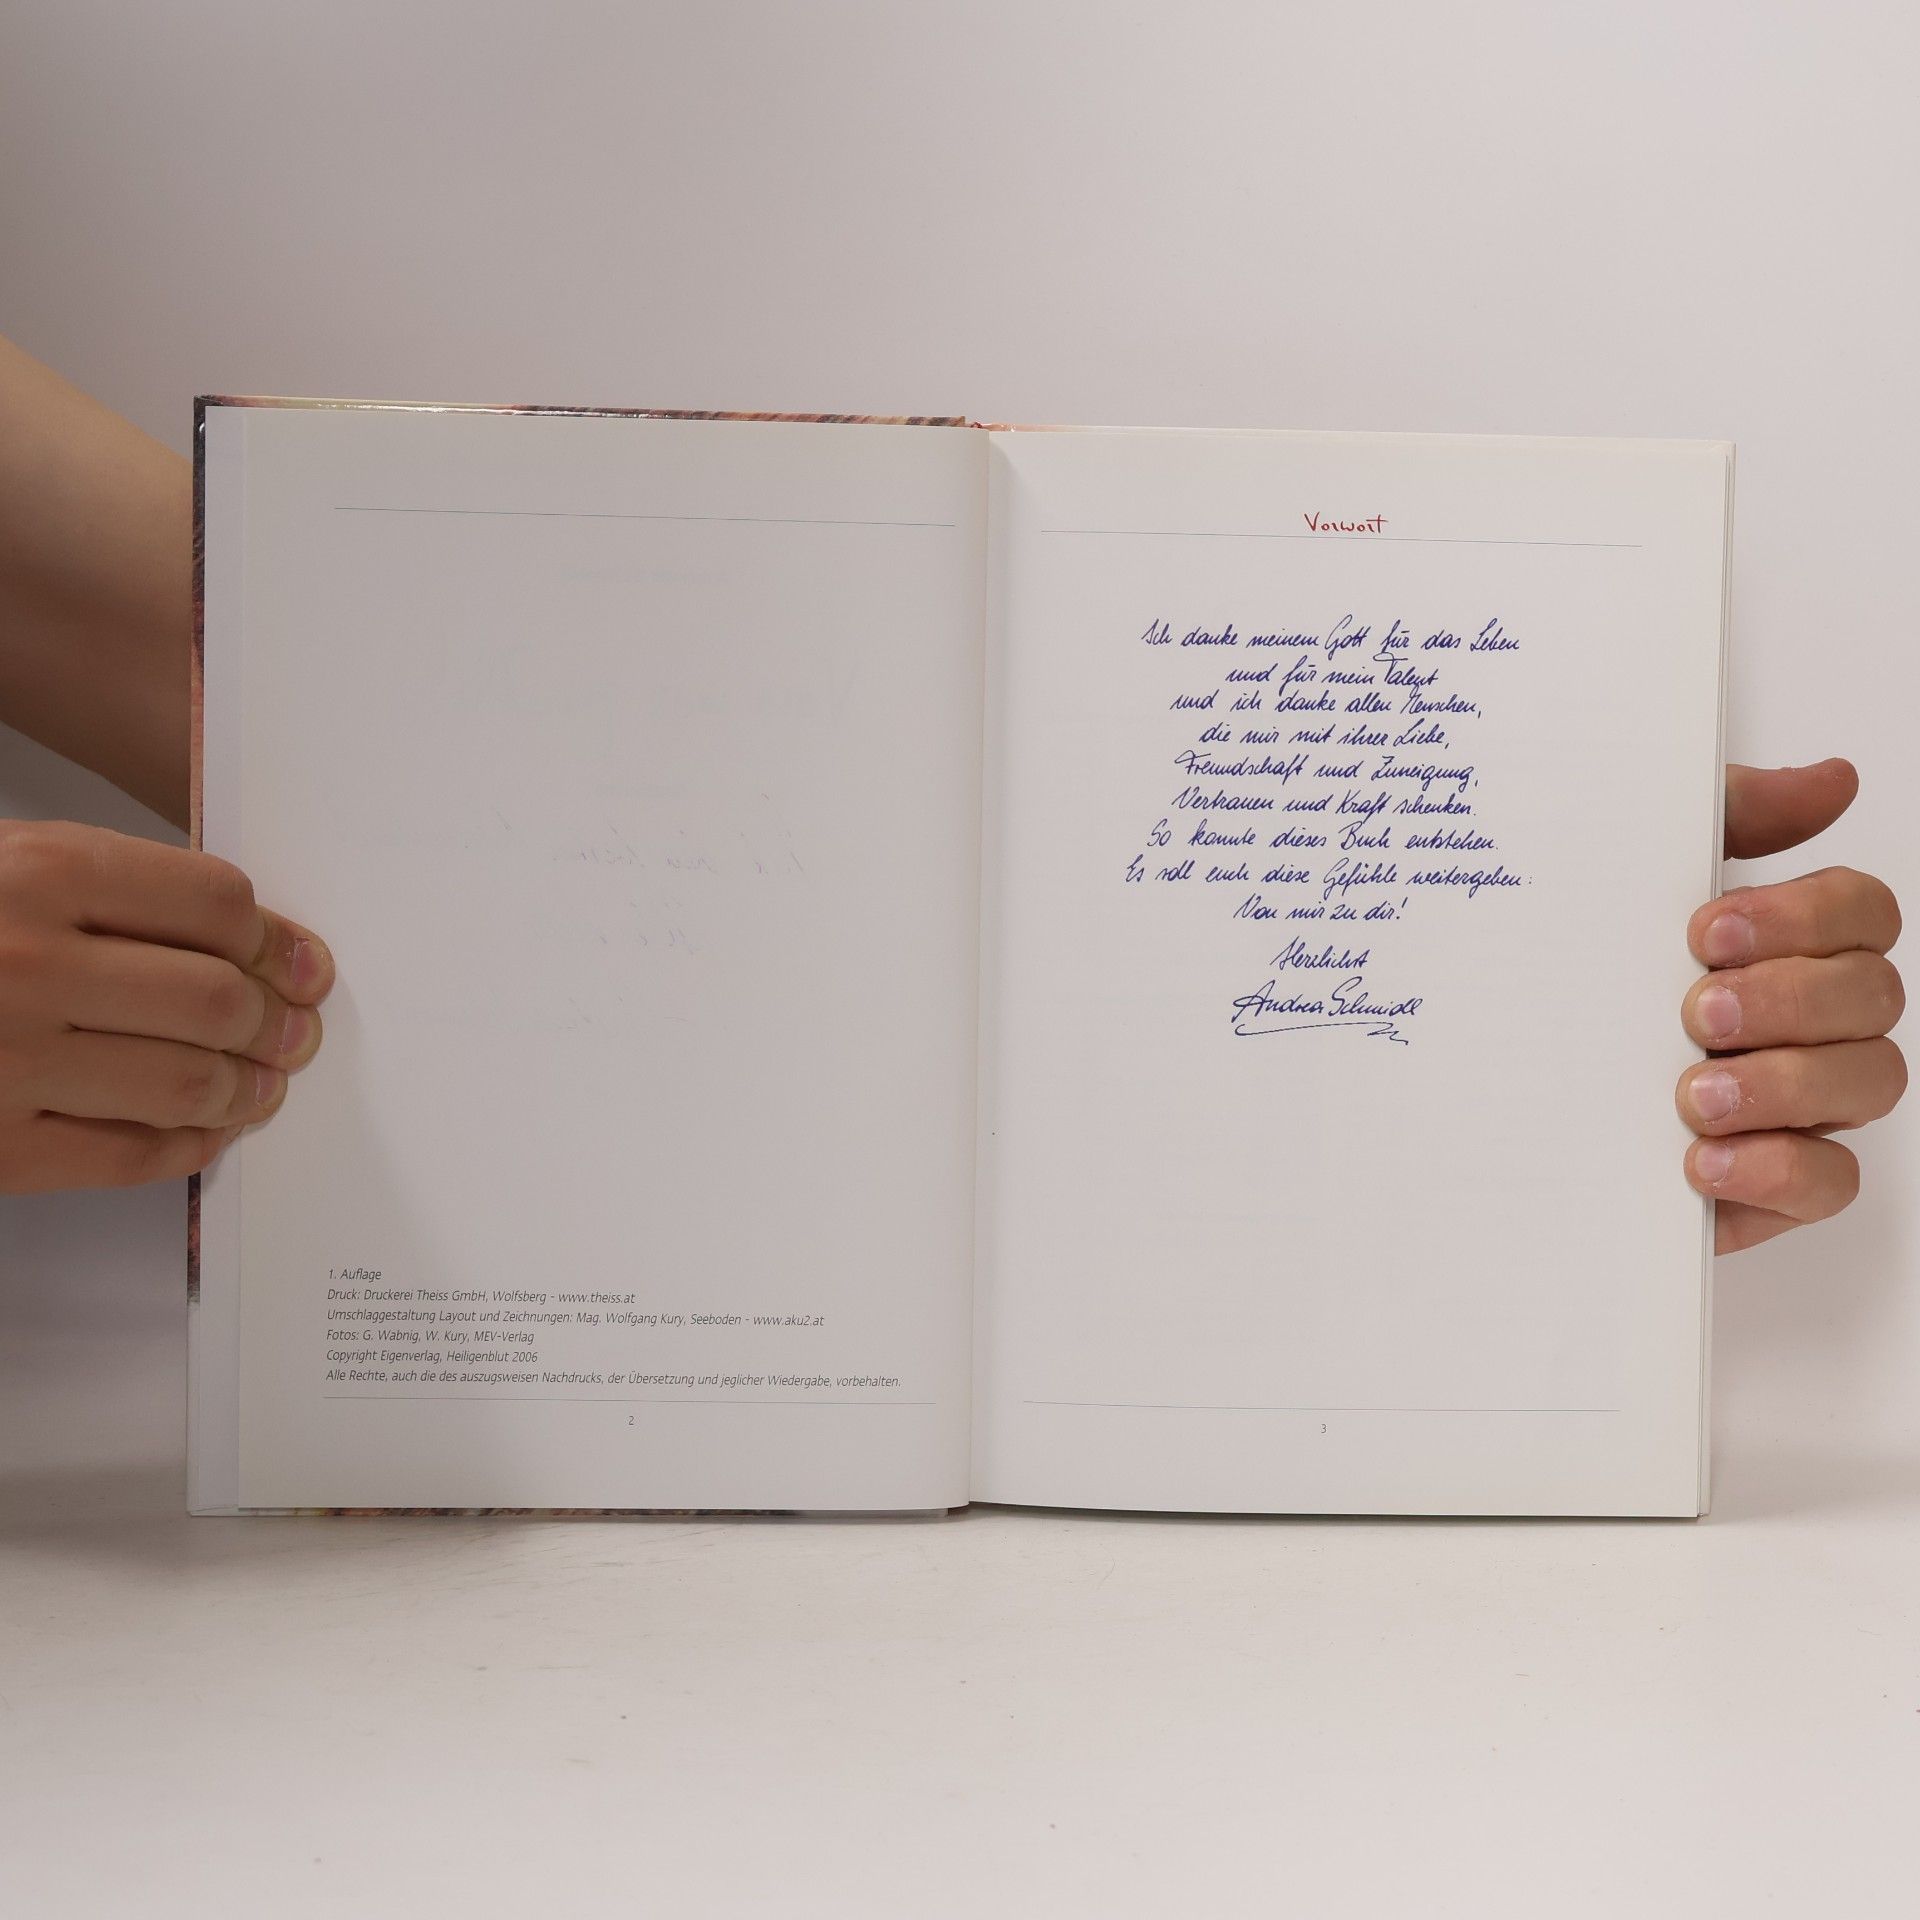 1. Auflage
Druck: Druckerei Theiss GmbH, Wolfsberg - www.theiss.at
Umschlaggestaltung Layout und Zeichnungen: Mag. Wolfgang Kury, Seeboden - www.aku2.at
Fotos: G. Wabnig, W. Kury, MEV-Verlag
Copyright Eigenverlag, Heiligenblut 2006
Alle Rechte, auch die des auszugsweisen Nachdrucks, der Übersetzung und jeglicher Wiedergabe, vorbehalten.
2
Vorwort
Ich danke meinem Gott für das Leben
und für mein Talent
und ich danke allen Menschen,
die mir mit ihrer Liebe,
Freundschaft und Zuneigung,
Vertrauen und Kraft schenken.
So konnte dieses Buch entstehen.
Es soll euch diese Gefühle weitergeben:
Von mir zu dir!
Herzlichst
Andrea Schmidl
3